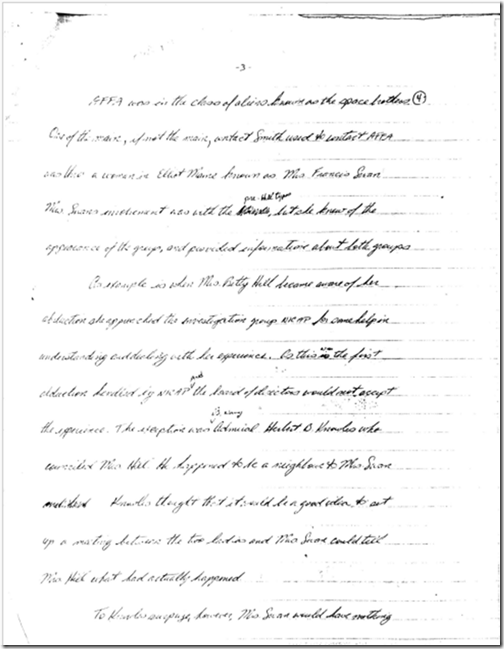 -3-
AFFA was in the class of aliens known as the space brothers. (4)
One of the main, if not the main, contact Smith used to contact AFFA
was thru a woman in Elliot Maine known as Mrs Francis Swan
pre-Hill types
Mrs Swans involvement was with the, but she knew of the
appearance of the groups, and provided information about both groups
An example is when Mrs Betty Hill became aware of her
abduction she approached the investigation group NICAP for some help in
understanding and dealing with her experience. As this was the first
abduction handled by NICAP the board of directors would not accept
the experience. The exception was Admiral Herbert B. Knowles who
counciled Mrs Hill. He happened to be a neighbor to Mrs Swan
Knowles thought that it would be a good idea to set
up a meeting between the two ladies and Mrs Swan could tell
Mrs Hill what had actually happened
To Knowles surprise, however, Mrs Swan would have nothing